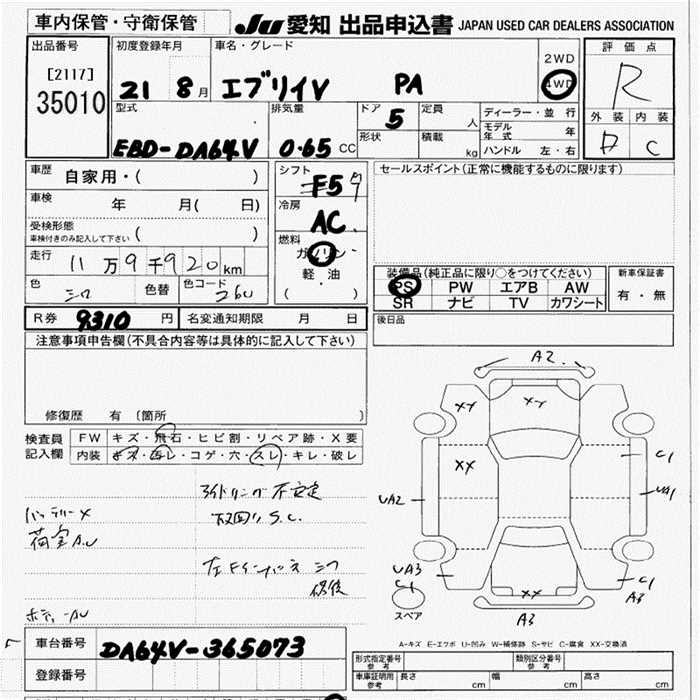 車内保管・守衛保管
JU 愛知 出品申込書 JAPAN USED CAR DEALERS ASSOCIATION
出品番号
[2117]
35010
初度登録年月
21 8月
車名・グレード
エブリイV PA
2WD
4WD
評価点
R
外装 内装
D C
型式
EBD-DA64V
排気量
0.65 CC
ドア
5
形状
定員
人
積載
kg
ディーラー・並行
モデル年式 年
ハンドル 左・右
車歴 自家用・( )
車検 年 月( 日)
受検形態
車検付きのみ記入して下さい ( )
走行 11万9千920km
色 シロ 色替 色コード 26U
シフト
F5
冷房
AC
燃料
ガソリン・
軽・油
( )
セールスポイント(正常に機能するものに限ります)
装備品(純正品に限り○をつけてください)
PS PW エアB AW
SR ナビ TV カワシート
新車保証書
有・無
R券 9310円 名変通知期限 月 日
後日品
注意事項申告欄(不具合内容等は具体的に記入して下さい)
修復歴 有 〔箇所
検査員記入欄
FW キズ・飛石・ヒビ割・リペア跡・X要
内装 キズ・汚レ・コゲ・穴・スレ・キレ・破レ
アイドリング不安定
バッテリーX
下回り S.C.
荷室A.U
左Fインパネ シワ
修復
ボディーAU
A2
XX XX
XX
C1
UA2
UA1
UA3
C1
XX
C1
A3
スペア
A3
A-キズ E-エクボ U-凹み W-補修跡 S-サビ C-腐食 XX-交換済
車台番号 DA64V-365073
登録番号
形式指定番号
参考
類別区分番号
参考
車庫証明用
参考
長さ
cm
幅
cm
高さ
cm